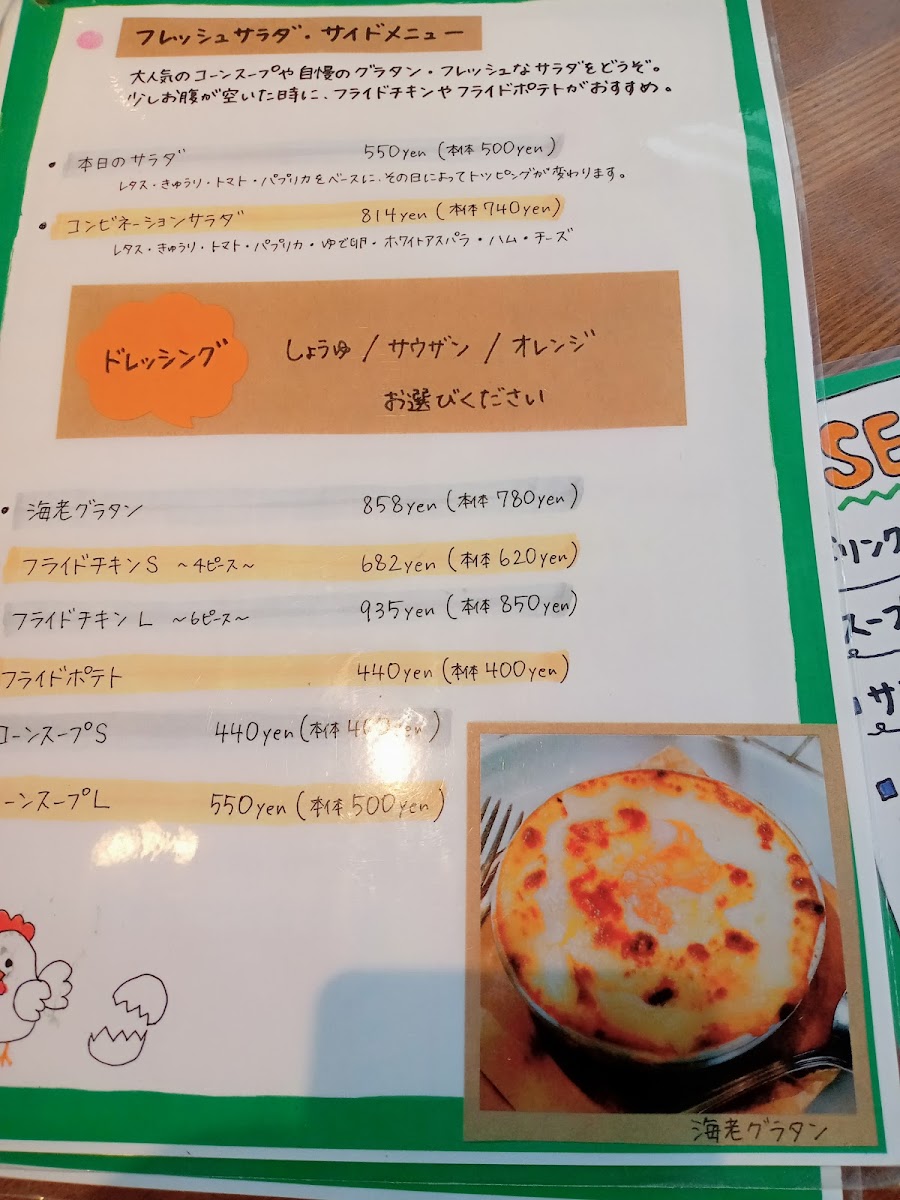 フレッシュサラダ・サイドメニュー
大人気のコーンスープや自慢のグラタン・フレッシュなサラダをどうぞ。
少しお腹が空いた時に、フライドチキンやフライドポテトがおすすめ。
・本日のサラダ 550yen (本体500yen)
レタス・きゅうり・トマト・パプリカをベースに、その日によってトッピングが変わります。
・コンビネーションサラダ 814yen (本体740yen)
レタス・きゅうり・トマト・パプリカ・ゆで卵・ホワイトアスパラ・ハム・チーズ
ドレッシング しょうゆ / サウザン / オレンジ
お選びください
・海老グラタン 858yen (本体780yen)
フライドチキンS ~4ピース~ 682yen (本体620yen)
フライドチキンL ~6ピース~ 935yen (本体850yen)
フライドポテト 440yen (本体400yen)
コーンスープS 440yen (本体4
ーンスープL 550yen (本体500yen)
海老グラタン
SE
リンク
スープ
サ